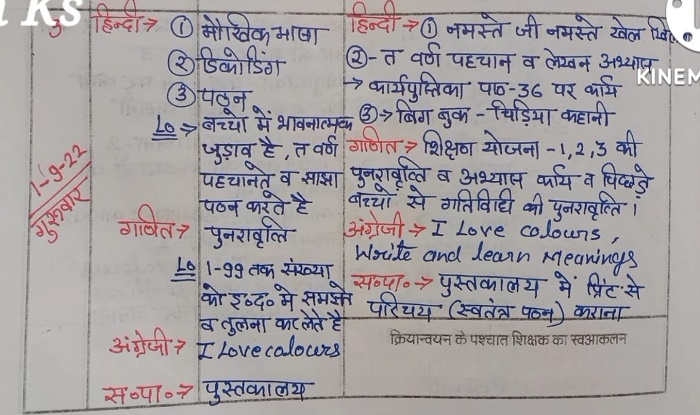 n KS
हिन्दी → ① मौखिक भाषा
② डिकोडिंग
③ पठन
LO → बच्चो में भावनात्मक
जुड़ाव है, त वर्ण
पहचानते व साझा
पठन करते है
1-9-22
गुरूवार
गणित → पुनरावृत्ति
LO 1-99 तक संख्या
को इ०द० मे समझते
व तुलना कर लेते है
अंग्रेजी → I Love calours
स०पा० → पुस्तकालय
हिन्दी → ① नमस्ते जी नमस्ते खेल
② - त वर्ण पहचान व लेखन अभ्यास
→ कार्यपुस्तिका पाठ-36 पर कार्य
③ → बिग बुक - चिड़िया कहानी
गणित → शिक्षण योजना -1,2,3 की
पुनरावृत्ति व अभ्यास कार्य व पिछड़े
बच्चो से गतिविदी की पुनरावृत्ति।
अंग्रेजी → I Love calours,
Write and learn Meanings
स०पा० → पुस्तकालय में प्रिंट से
परिचय (स्वतंत्र पठन) कराना
क्रियान्वयन के पश्चात शिक्षक का स्वआकलन
KINEM